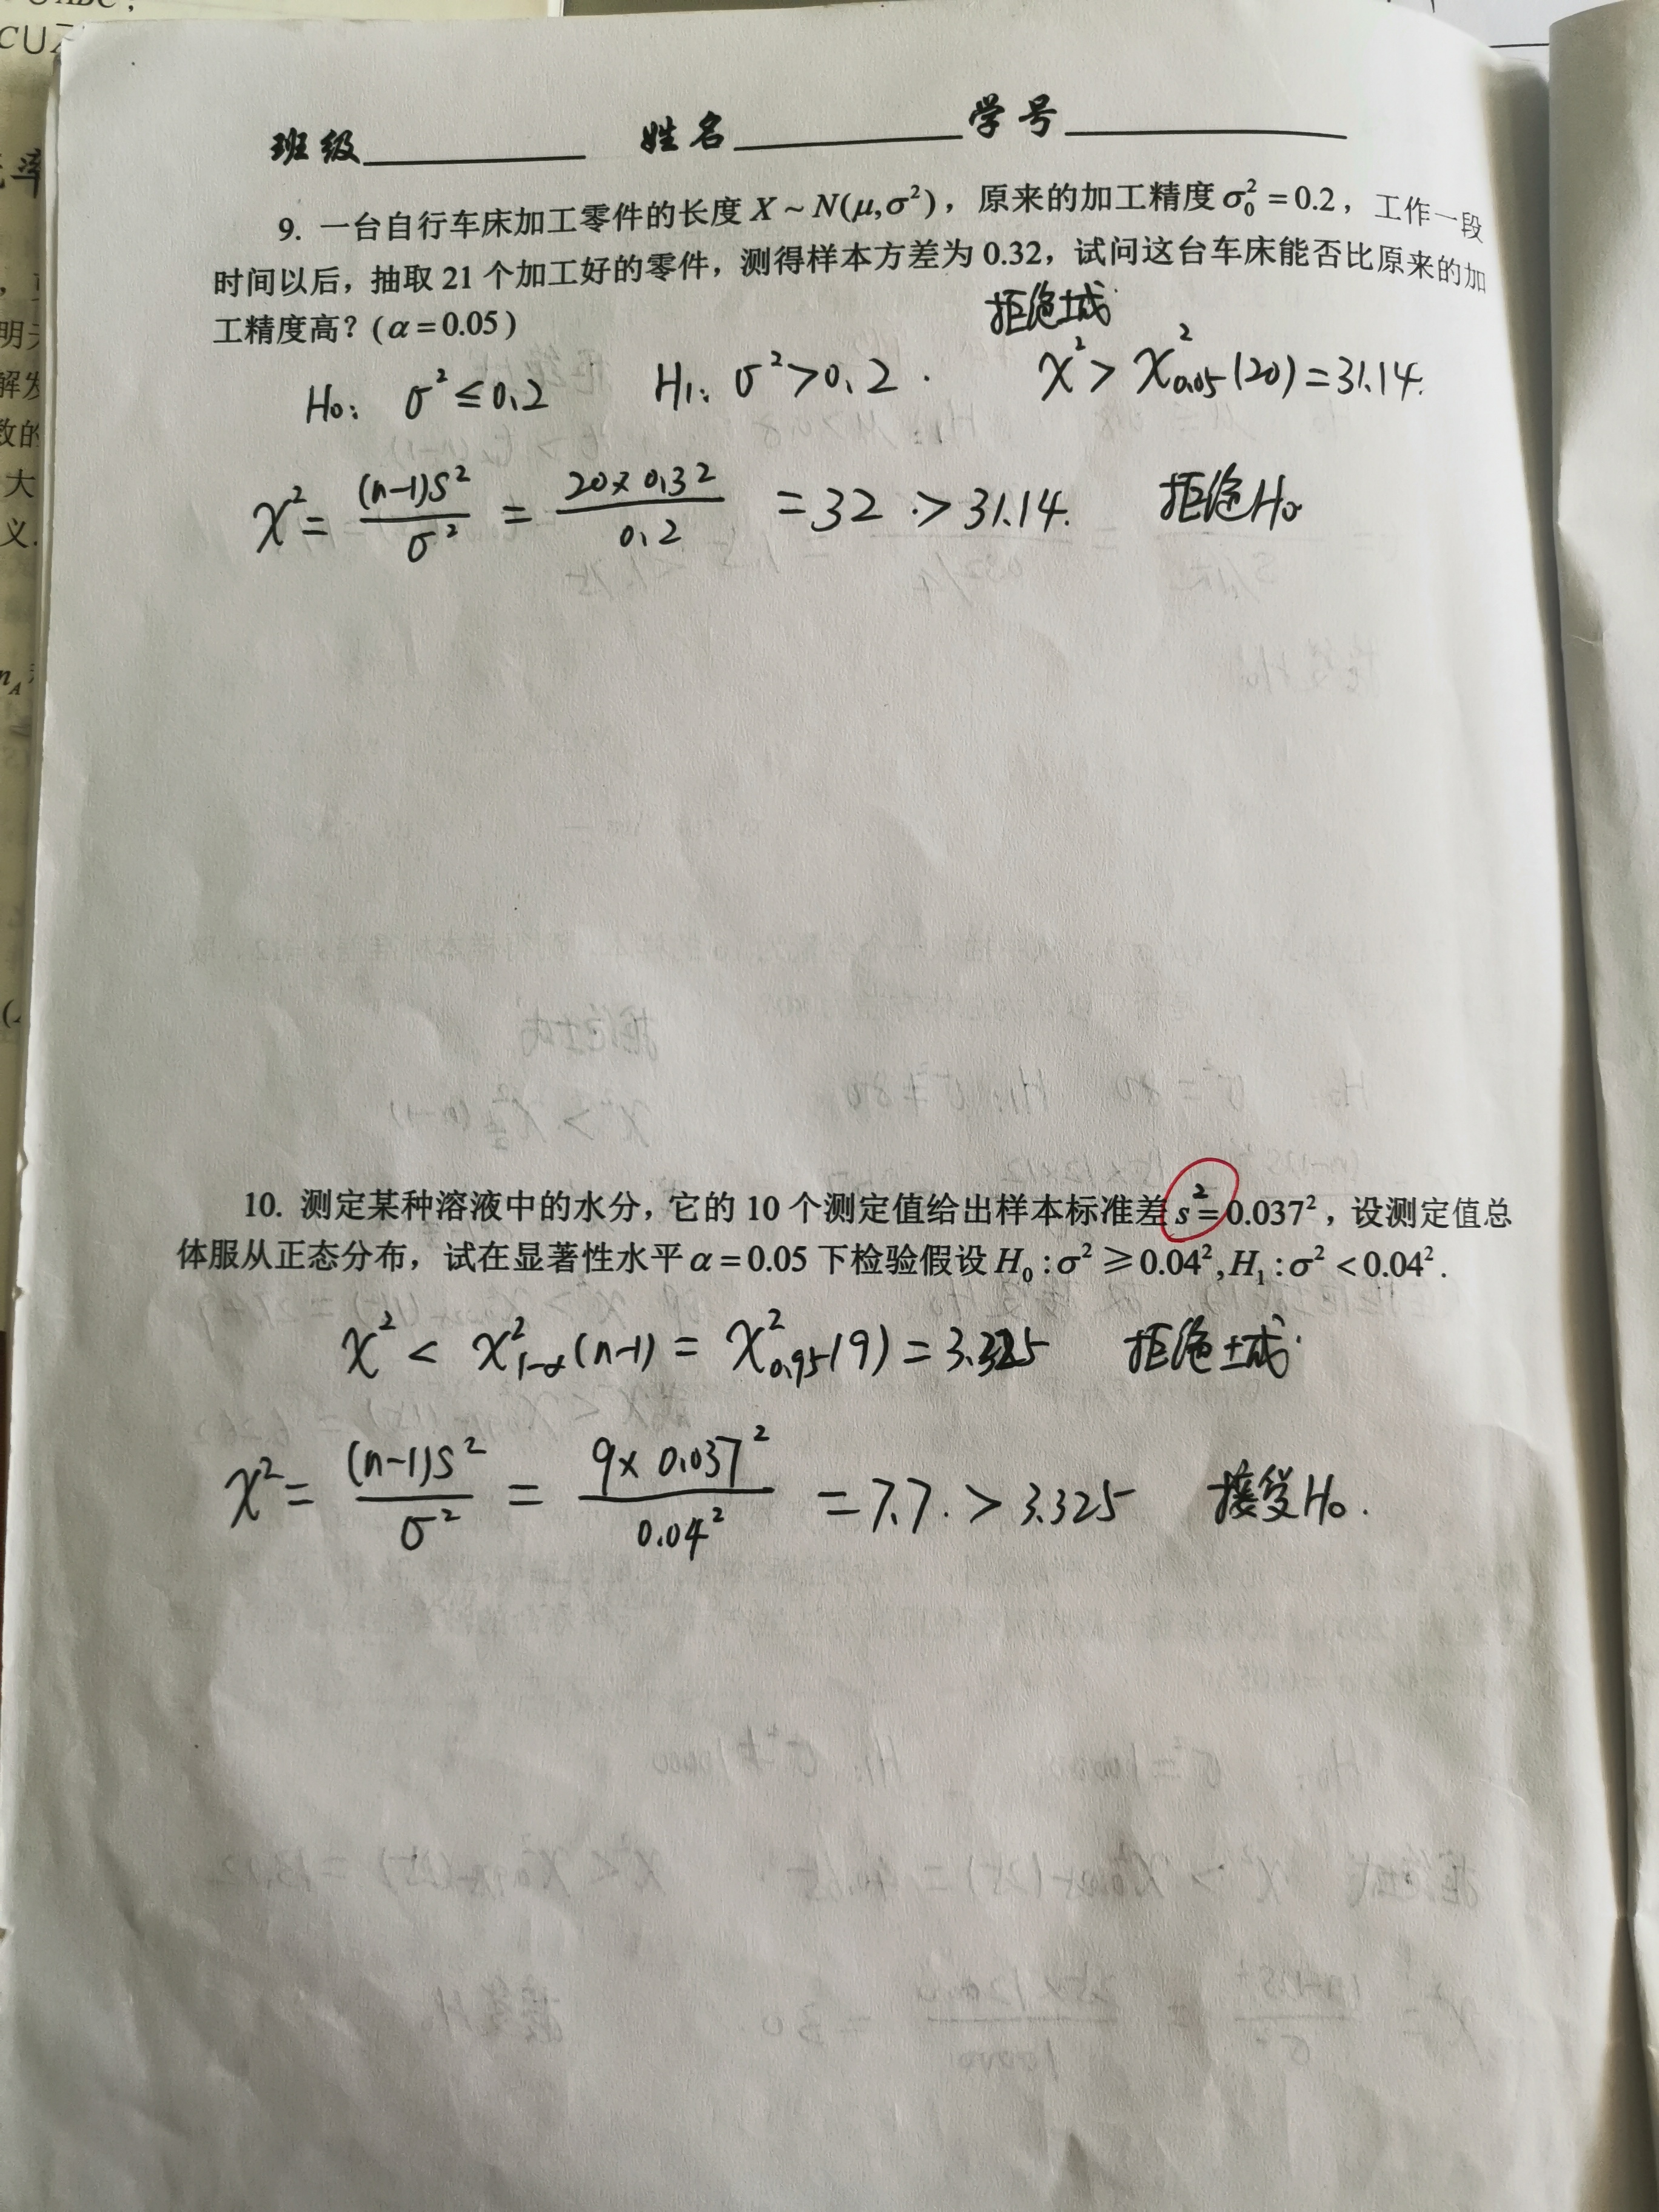 班级 姓名 学号
9. 一台自行车床加工零件的长度 X ~ N(μ,σ²)，原来的加工精度 σ₀² = 0.2，工作一段
时间以后，抽取 21 个加工好的零件，测得样本方差为 0.32，试问这台车床能否比原来的加
工精度高？(α = 0.05)
拒绝域
H₀: σ² ≤ 0.2 H₁: σ² > 0.2. χ² > χ²₀.₀₅(20) = 31.14.
χ² = (n-1)S²/σ² = 20×0.32/0.2 = 32 > 31.14. 拒绝H₀
10. 测定某种溶液中的水分，它的 10 个测定值给出样本标准差 s² = 0.037²，设测定值总
体服从正态分布，试在显著性水平 α = 0.05 下检验假设 H₀ : σ² ≥ 0.04², H₁ : σ² < 0.04².
χ² < χ²₁₋α(n-1) = χ²₀.₉₅(9) = 3.325 拒绝域.
χ² = (n-1)S²/σ² = 9×0.037²/0.04² = 7.7. > 3.325 接受H₀.